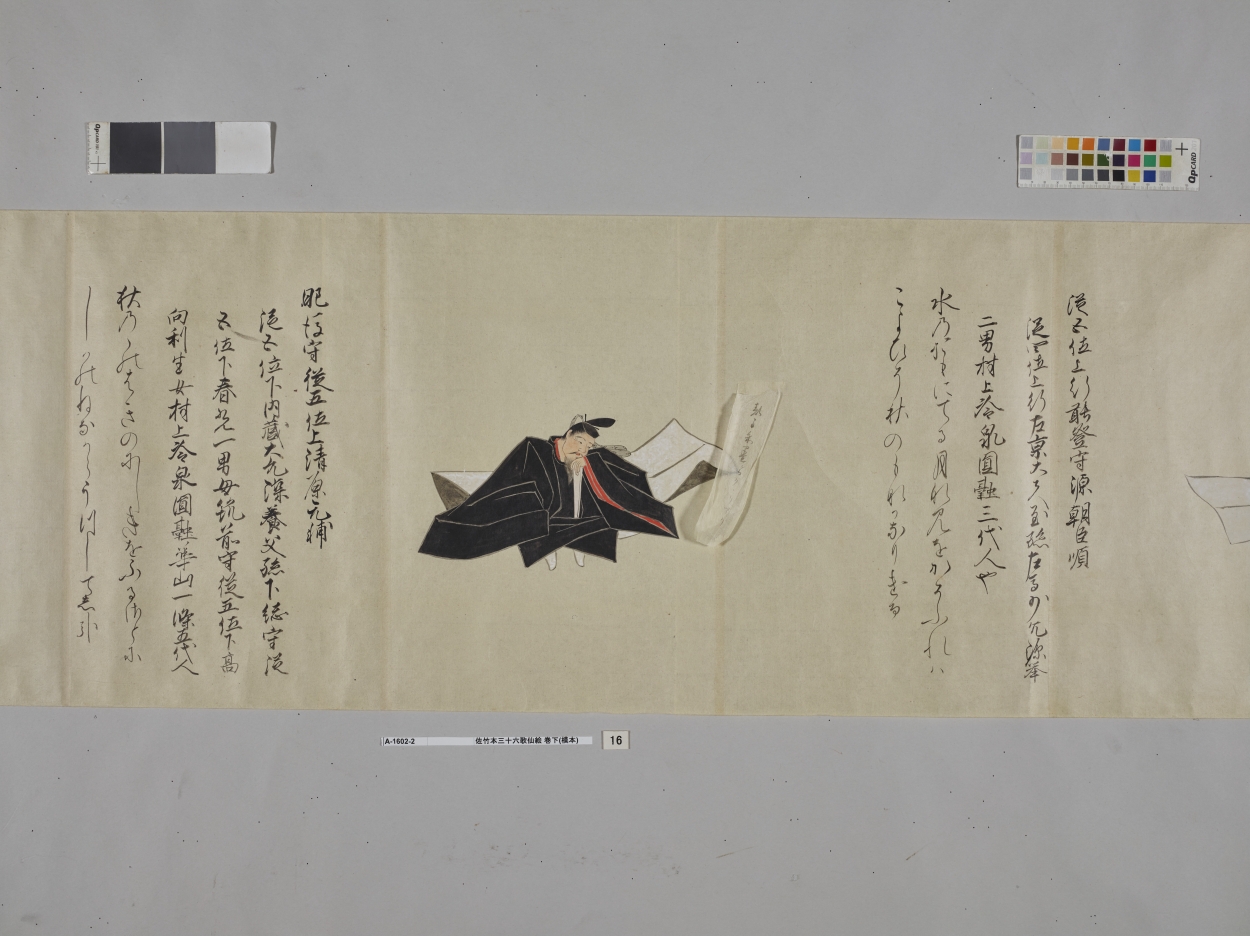 従五位上行能登守源朝臣順
従四位上行左京大夫至孫左馬少允源挙
二男村上冷泉圓融三代人や
水乃おもにてる月な見をかそふれハ
こよひそ秋のもなかなりける
肥後守従五位上清原元輔
従五位下内蔵大允深養父孫下総守従
五位下春光一男母筑前守従五位下高
向利生女村上冷泉圓融華山一條五代人
秋乃のはきのにしきをふるさとに
しかのねなからうつしてし
A-1602-2
佐竹本三十六歌仙絵 巻下(模本)
16
QPCARD
QPCARD